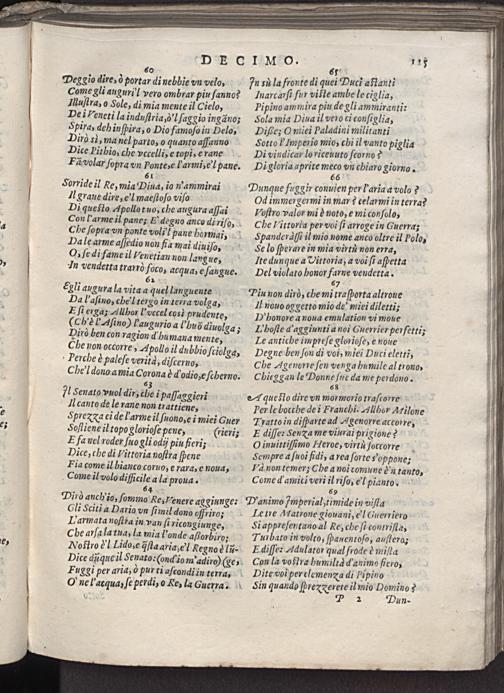 DECIMO.
115
60
Deggio dire, ò portar di nebbie vn velo,
Come gli auguri'l vero ombrar piu sanno?
Illustra, o Sole, di mia mente il Cielo,
De i Veneti la industria, ò'l saggio ingãno;
Spira, deh inspira, o Dio famoso in Delo,
Dirò sì, ma nel parto, o quanto affanno
Dice Pithio, che vccelli, e topi, e rane
Fã volar sopra vn Ponte, e l'armi, e'l pane.
61
Sorride il Re, mia Diua, io n'ammirai
Il graue dire, e'l maestoso viso
Di questo Apollo tuo, che augura assai
Con l'arme il pane; E' degno anco di riso,
Che sopra vn ponte voli'l pane hormai,
Da le arme assedio non fia mai diuiso,
O, se di fame il Venetian non langue,
In vendetta trarrò foco, acqua, e sangue.
62
Egli augura la vita a quel languente
Da l'asino, che'l tergo in terra volga,
E si erga; Allhor l'vccel così prudente,
(Ch'è l'Asino) l'augurio a l'huõ diuolga;
Dirò ben con ragion d'humana mente,
Che non occorre, Apollo il dubbio sciolga,
Perche è palese verità, discerno,
Che'l dono a mia Corona è d'odio, e scherno.
63
Il Senato vuol dir, che i passaggieri
Il canto de le rane non trattiene,
Sprezza ci de l'arme il suono, e i miei Guer
Sostiene il topo gloriose pene, (rieri;
E fa nel roder suo gli odij piu fieri;
Dice, che di Vittoria nostra spene
Fia come il bianco coruo, e rara, e noua,
Come il volo difficile a la proua.
64
Dirò anch'io, sommo Re, Venere aggiunge:
Gli Sciti a Dario vn simil dono offriro;
L'armata nostra in van si ricongiunge,
Che arsa la tua, la mia l'onde assorbiro;
Nostro è'l Lido, e q̃sta aria, e'l Regno è lũ-
Dice dũque il Senato: (ond'io m'adiro) (ge,
Fuggi per aria, ò pur ti ascondi in terra,
O' ne l'acqua, se perdi, o Re, la Guerra.
65
In sù la fronte di quei Duci astanti
Inarcarsi fur viste ambe le ciglia,
Pipino ammira piu de gli ammiranti:
Sola mia Diua il vero ci consiglia,
Disse; O miei Paladini militanti
Sotto l'Imperio mio, chi il vanto piglia
Di vindicar lo riceuuto scorno?
Di gloria aprite meco vn chiaro giorno.
66
Dunque fuggir conuien per l'aria a volo?
Od immergermi in mar? celarmi in terra?
Vostro valor mi è noto, e mi consolo,
Che Vittoria per voi si arroge in Guerra;
Spanderassi il mio nome anco oltre il Polo,
Se lo sperare in mia virtù non erra,
Ite dunque a Vittoria, a voi si aspetta
Del violato honor farne vendetta.
67
Piu non dirò, che mi trasporta altroue
Il nouo oggetto mio de' miei diletti;
D'honore a noua emulation vi moue
L'hoste d'aggiunti a noi Guerrier perfetti;
Le antiche imprese gloriose, e noue
Degne ben son di voi, miei Duci eletti,
Che Agenorre sen venga humile al trono,
Chieggan le Donne sue da me perdono.
68
A questo dire vn mormorio trascorre
Per le bocche de i Franchi. Allhor Milone
Tratto in disparte ad Agenorre accorre,
E disse: Senza me viurai prigione?
O inuittissimo Heroe, virtù soccorre
Sempre a' suoi fidi, a rea sorte s'oppone;
Và non temer; Che a noi comune è'n tanto,
Come d'amici veri il riso, e'l pianto.
69
D'animo Imperial, timide in vista
Le tre Matrone giouani, e'l Guerriero
Si appresentano al Re, che si contrista,
Turbato in volto, spauentoso, austero;
E disse: Adulator qual frode è mista
Con la vostra humiltà d'animo fiero,
Dite voi per clemenza di Pipino
Sin quando sprezzerete il mio Domino?
P 2 Dun-